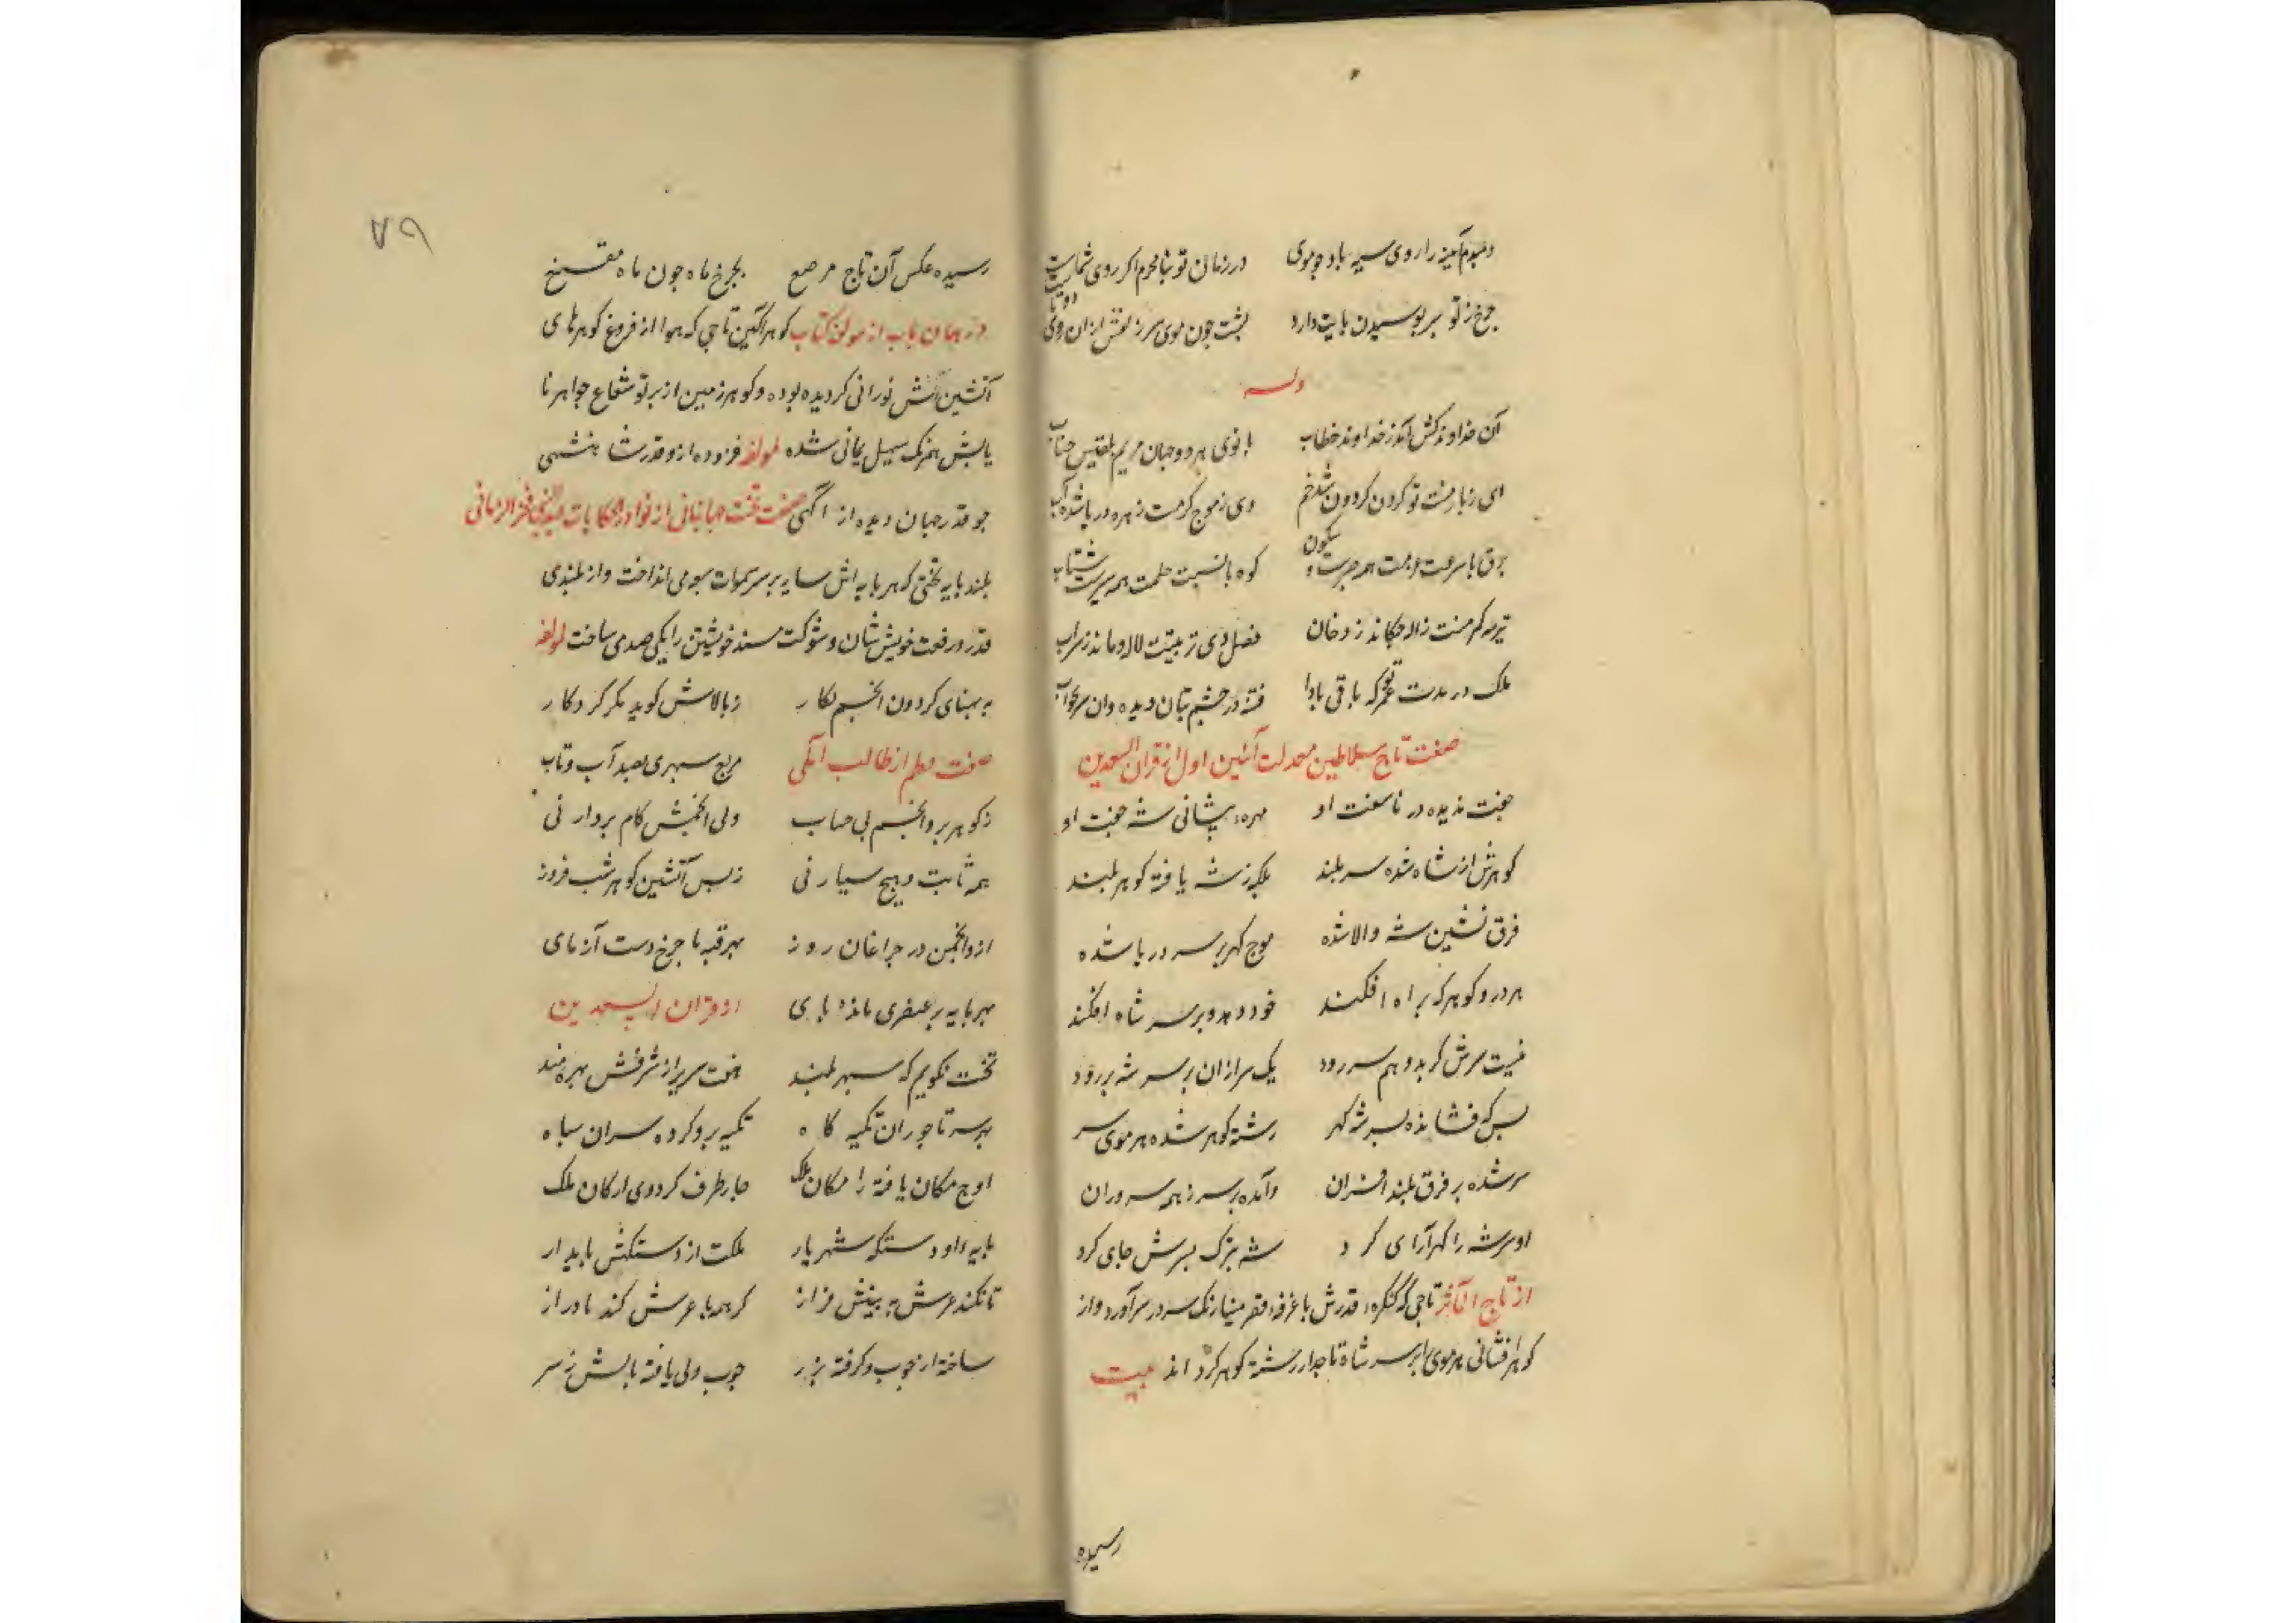 دمبدم آینه را روی سیه باد چو موی در زمان تو بنا محرم اکر روی شماست
چرخ ز تو بر بوسیدن پایت دارد پشت چون موی سر زلفش ازان روی دوتا
وله
آن خداوند کش آمد ز خداوند خطاب بانوی هر دو جهان مریم بلقیس جناب
ای ز بار منت تو کردن کردون شده خم وی ز موج کرمت زهره دریا شده آب
برق با سرعت عزمت همه جزست و سکون کوه با نسبت حلمت همه سیرست شتاب
تربیه کرمت ژاله چکاند ز دخان فضل دی تربیتت لاله دماند ز سراب
ملک در مدت عمر تو که باقی بادا فتنه در چشم بتان دیده وان هم بخواب
صفت تاج سلاطین معدلت آئین اول از قران السعدین
جفت ندیده در ناسفت او مهره پیشانی شه جفت او
کوهرش از شاه شده سربلند بلکه ز شه یافته کوهر بلند
فرق نشین شه والا شده موج کهر بر سر دریا شده
هر در و کوهر که براه افکند خود دهد و بر سر شاه افکند
نیست سرش کر بدو هم سر رود یک سر ازان بر سر شه بر رود
بس که فشانده بسر شه کهر رشته کوهر شده هر موی سر
سر شده بر فرق بلند افسران وآمده بر سر ز همه سروران
او سر شه را کهر آرای کرد شه بزرک بسرش جای کرد
از تاج المآثر تاجی که کنکره قدرش با غرفه قصر مینا رنک سر در سر آورد و از
کوهر افشانی هر موی را بر سر شاه تاجدار رشته کوهر کرد اند بیت
رسیده
۷۹
رسیده عکس آن تاج مرصع بچرخ ماه چون ماه مقنع
در همان باب از مولف کتاب کوهر آکین تاجی که هوا از فروغ کوهرهای
آتشین آتش نورانی کردیده بوده و کوهر زمین از برتو شعاع جواهر نا
یابش همرنک سهیل یمانی شده لمولفه فزوده ازو قدر شاهنشهی
چو قدر جهان دیده از آکهی صفت تخت جهانبانی از نوادر حکایات عبدالنبی فخر الزمانی
بلند بایه تختی که هر بایه اش سایه بر سر سموات سبع می انداخت و از بلندی
قدر و رفعت خویش شان و شوکت مسند خویشتن را یکی صدی ساخت لمولفه
به بهنای کردون انجم نکار ز بالاش کوید مکر کردکار
صفت معلم از طالب آملی مربع سبهری بصد آب و تاب
ز کوهر برو انجم بی حساب ولی انجمش کام بردار نی
همه ثابت و هیچ سیار نی ز بس آتشین کوهر شب فروز
ازو انجمن در چراغان روز بهر قبه با چرخ دست آزمای
بهر بایه بر عنصری مانده پای از قران السعدین
تخت نکویم که سبهر بلند هفت سریر از شرفش بهره مند
بر سر تاجوران تکیه کاه تکیه برو کرده سران سباه
اوج مکان یافته را مکان ملک چار طرف کرد وی ارکان ملک
بایه او دستکه شهریار ملکت از دستکهش بایدار
تا نکند عرش به بیشش فراز کرهمه با عرش کند با دراز
ساخته از چوب و کرفته بزر چوب ولی یافته بالش ز سر